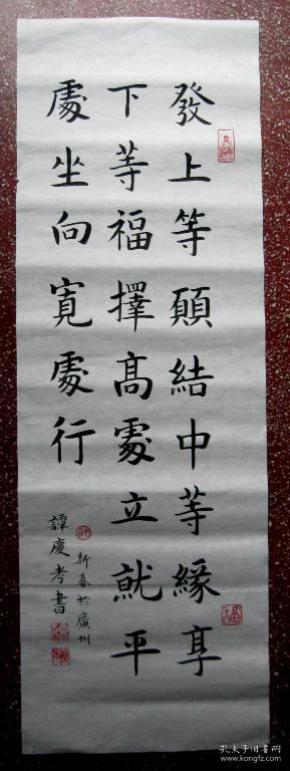 發上等願結中等緣享
下等福擇高處立就平
處坐向寬處行
新春於廣州
譚慶孝書
孔夫子旧书网
www.kongfz.com